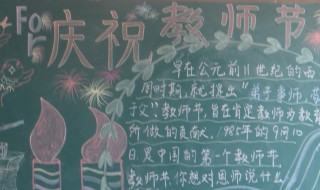 For 庆祝教师节
早在公元前11世纪的西
周时期,就提出"弟子事师,敬
于父"教师节,旨在肯定教师为教育
所做的贡献。1985年的9月10
日是中国的第一个教师节。
教师节,你想对恩师说什么